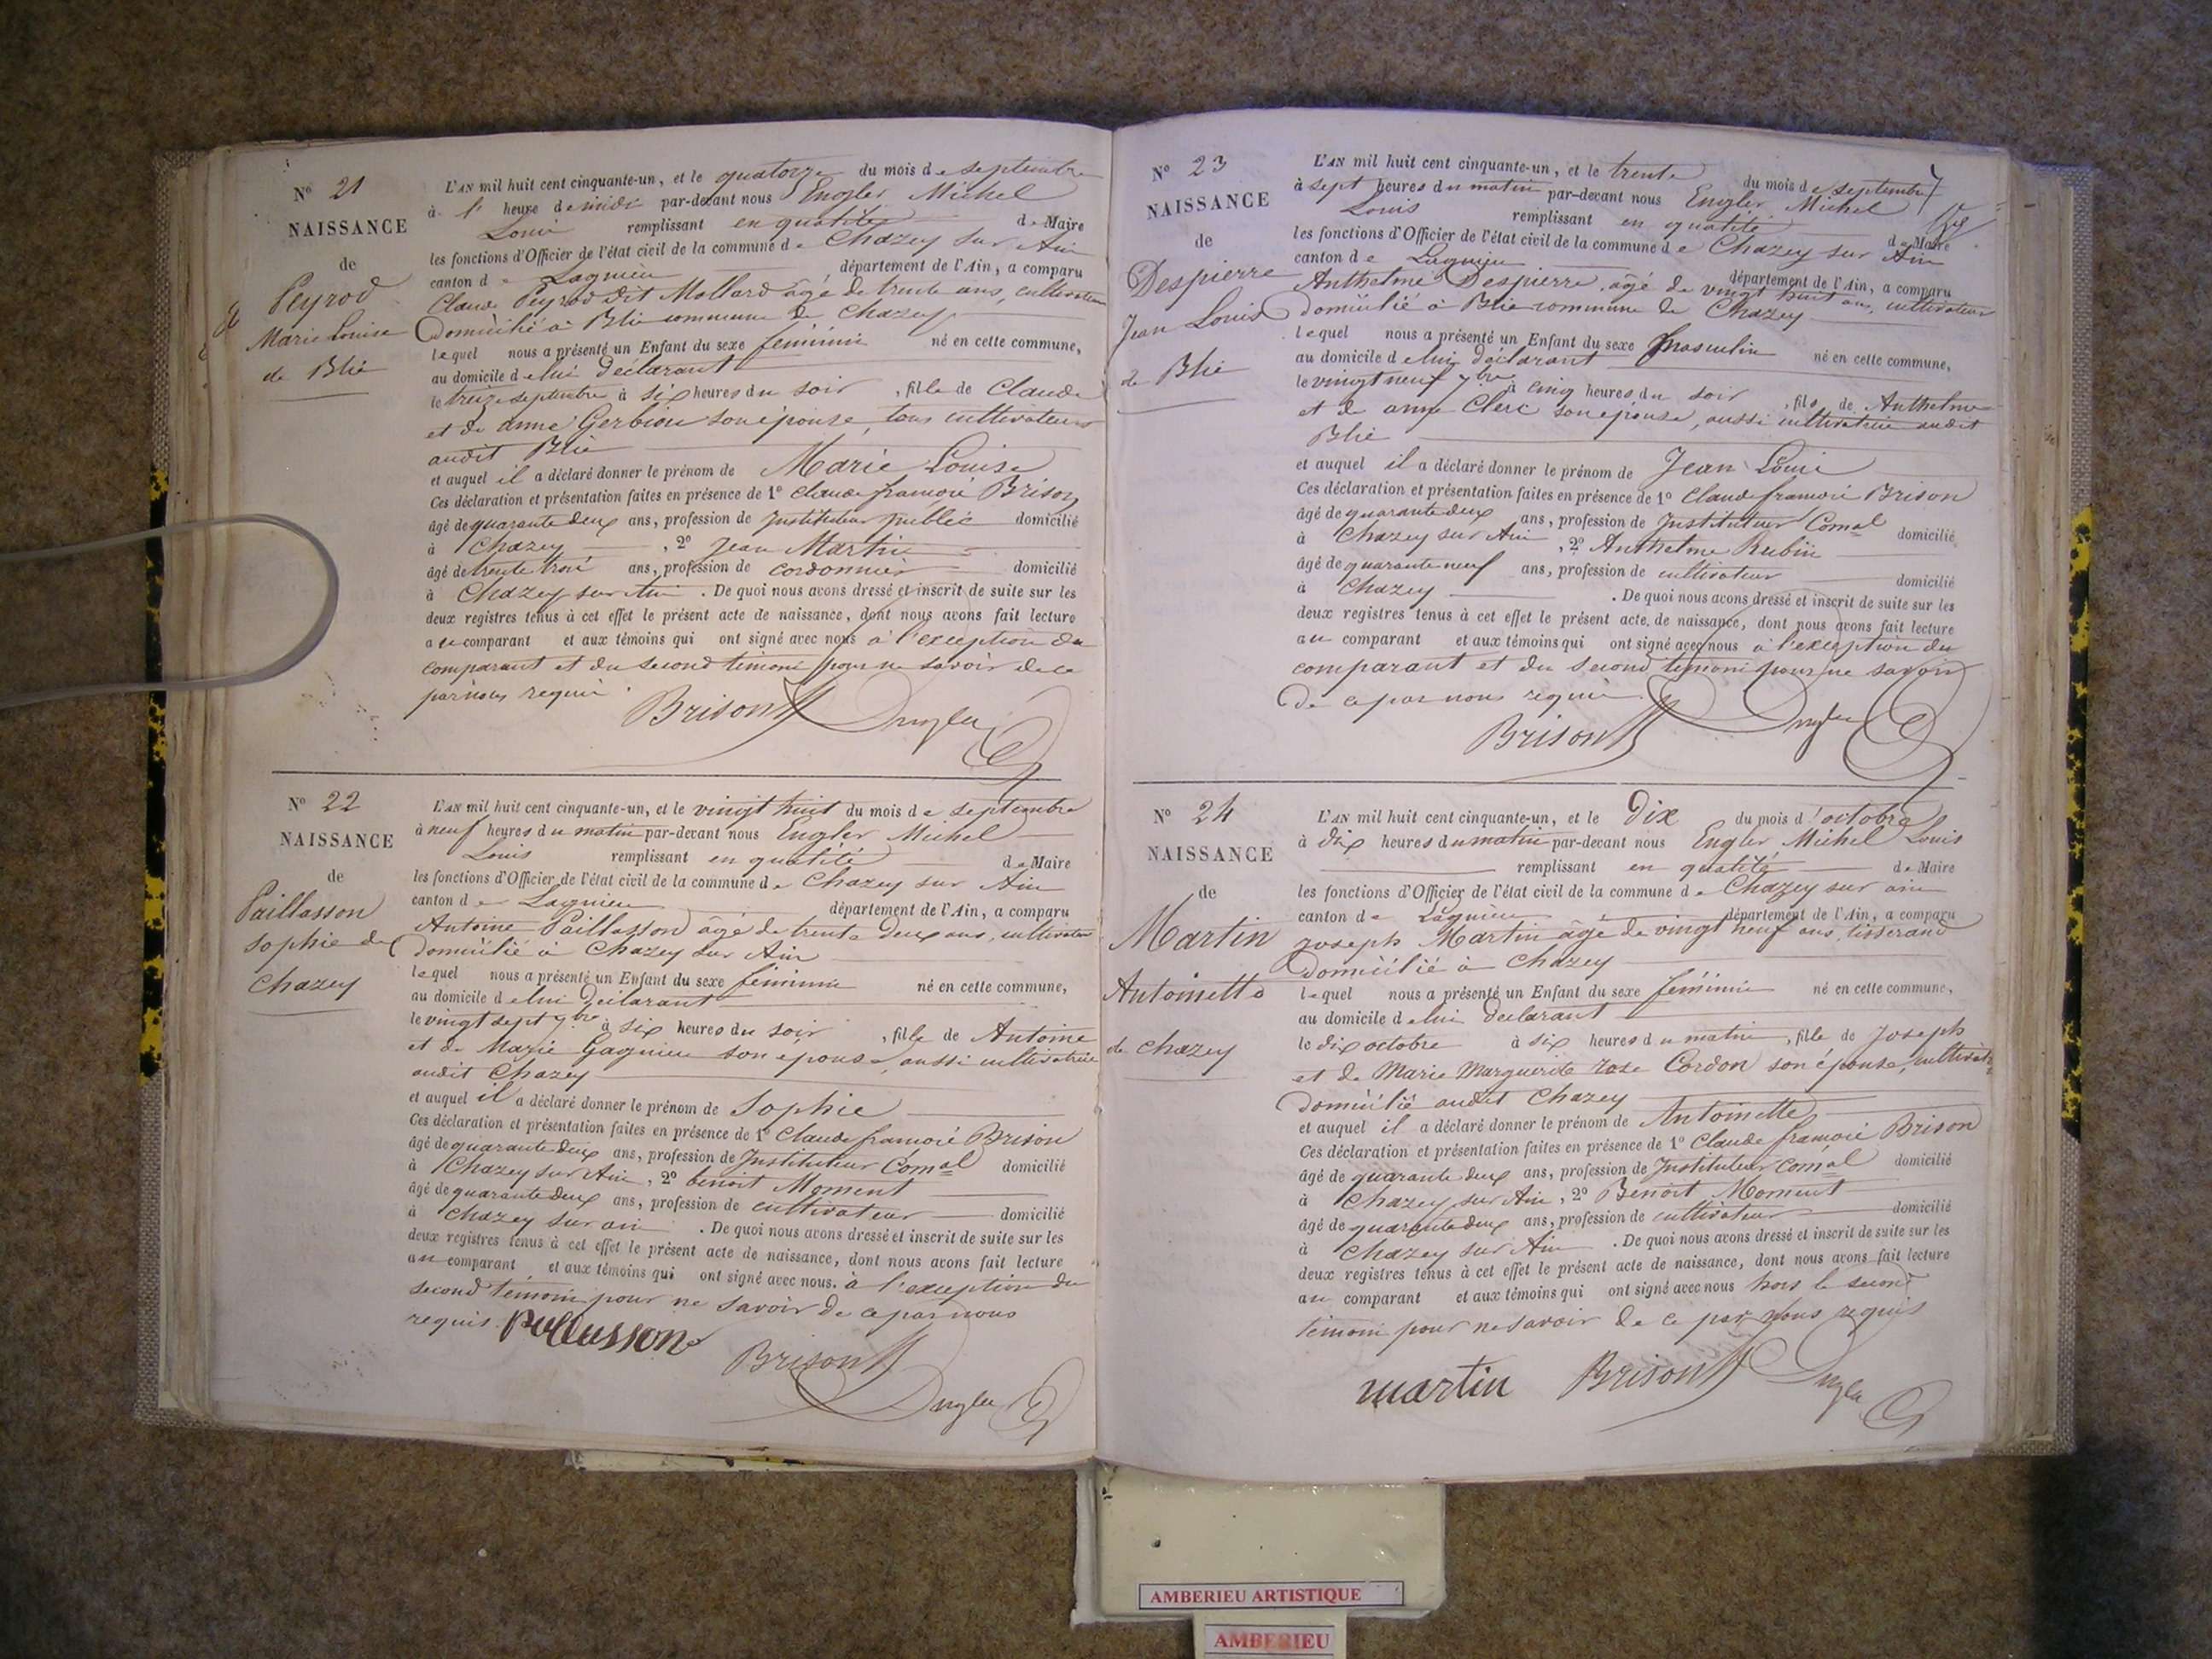 N° 21
NAISSANCE
de
Peyrod
Marie Louise
de Blie
L'AN mil huit cent cinquante-un, et le quatorze du mois de septembre
à 1 heure de midi par-devant nous Engler Michel
Louis remplissant en qualité de Maire
les fonctions d'Officier de l'état civil de la commune de Chazey sur Ain
canton de Lagnieu département de l'Ain, a comparu
Claude Peyrod dit Mollard âgé de trente ans, cultivateur
domicilié à Blie commune de Chazey
lequel nous a présenté un Enfant du sexe féminin né en cette commune,
au domicile de lui déclarant
le treize septembre à six heures du soir, fille de Claude
et de anne Gerbiou son épouse, tous cultivateurs
audit Blie
et auquel il a déclaré donner le prénom de Marie Louise
Ces déclaration et présentation faites en présence de 1° Claude françois Brison
âgé de quarante deux ans, profession de Instituteur public domicilié
à Chazey, 2° Jean Martin
âgé de trente trois ans, profession de cordonnier domicilié
à Chazey sur Ain. De quoi nous avons dressé et inscrit de suite sur les
deux registres tenus à cet effet le présent acte de naissance, dont nous avons fait lecture
au comparant et aux témoins qui ont signé avec nous à l'exception du
comparant et du second témoin pour ne savoir de ce
par nous requis
Brison Engler
N° 22
NAISSANCE
de
Paillasson
Sophie de
Chazey
L'AN mil huit cent cinquante-un, et le vingt huit du mois de septembre
à neuf heures du matin par-devant nous Engler Michel
Louis remplissant en qualité de Maire
les fonctions d'Officier de l'état civil de la commune de Chazey sur Ain
canton de Lagnieu département de l'Ain, a comparu
Antoine Paillasson âgé de trente deux ans, cultivateur
domicilié à Chazey sur Ain
lequel nous a présenté un Enfant du sexe féminin né en cette commune,
au domicile de lui déclarant
le vingt sept 7bre à six heures du soir, fille de Antoine
et de Marie Gagnieu son épouse, aussi cultivatrice
audit Chazey
et auquel il a déclaré donner le prénom de Sophie
Ces déclaration et présentation faites en présence de 1° Claude françois Brison
âgé de quarante deux ans, profession de Instituteur Comal domicilié
à Chazey sur Ain, 2° benoit Moment
âgé de quarante deux ans, profession de cultivateur domicilié
à Chazey sur ain. De quoi nous avons dressé et inscrit de suite sur les
deux registres tenus à cet effet le présent acte de naissance, dont nous avons fait lecture
au comparant et aux témoins qui ont signé avec nous. à l'exception du
second témoin pour ne savoir de ce par nous
requis. Pollusson
Brison Engler
N° 23
NAISSANCE
de
Despierre
Jean Louis
de Blie
L'AN mil huit cent cinquante-un, et le trente du mois de septembre
à sept heures du matin par-devant nous Engler Michel
Louis remplissant en qualité de Maire
les fonctions d'Officier de l'état civil de la commune de Chazey sur Ain
canton de Lagnieu département de l'Ain, a comparu
Anthelme Despierre, âgé de vingt huit ans, cultivateur
domicilié à Blie commune de Chazey
lequel nous a présenté un Enfant du sexe masculin né en cette commune,
au domicile de lui déclarant
le vingt neuf 7bre à cinq heures du soir, fils de Anthelme
et de anne Clerc son épouse, aussi cultivatrice audit
Blie
et auquel il a déclaré donner le prénom de Jean Louis
Ces déclaration et présentation faites en présence de 1° Claude françois Brison
âgé de quarante deux ans, profession de Instituteur Comal domicilié
à Chazey sur Ain, 2° Anthelme Rubin
âgé de quarante neuf ans, profession de cultivateur domicilié
à Chazey. De quoi nous avons dressé et inscrit de suite sur les
deux registres tenus à cet effet le présent acte de naissance, dont nous avons fait lecture
au comparant et aux témoins qui ont signé avec nous à l'exception du
comparant et du second témoin pour ne savoir
de ce par nous requis.
Brison Engler
N° 24
NAISSANCE
de
Martin
Antoinette
de Chazey
L'AN mil huit cent cinquante-un, et le Dix du mois d'octobre
à dix heures du matin par-devant nous Engler Michel Louis
remplissant en qualité de Maire
les fonctions d'Officier de l'état civil de la commune de Chazey sur ain
canton de Lagnieu département de l'Ain, a comparu
Joseph Martin âgé de vingt neuf ans, tisserand
domicilié à Chazey
lequel nous a présenté un Enfant du sexe féminin né en cette commune,
au domicile de lui déclarant
le dix octobre à six heures du matin, fille de Joseph
et de Marie Marguerite rose Cordon son épouse,
domicilié audit Chazey
et auquel il a déclaré donner le prénom de Antoinette
Ces déclaration et présentation faites en présence de 1° Claude françois Brison
âgé de quarante deux ans, profession de Instituteur Comal domicilié
à Chazey sur Ain, 2° Benoit Moment
âgé de quarante deux ans, profession de cultivateur domicilié
à Chazey sur Ain. De quoi nous avons dressé et inscrit de suite sur les
deux registres tenus à cet effet le présent acte de naissance, dont nous avons fait lecture
au comparant et aux témoins qui ont signé avec nous hors le second
témoin pour ne savoir de ce par nous requis
martin Brison Engler
AMBERIEU ARTISTIQUE
AMBERIEU